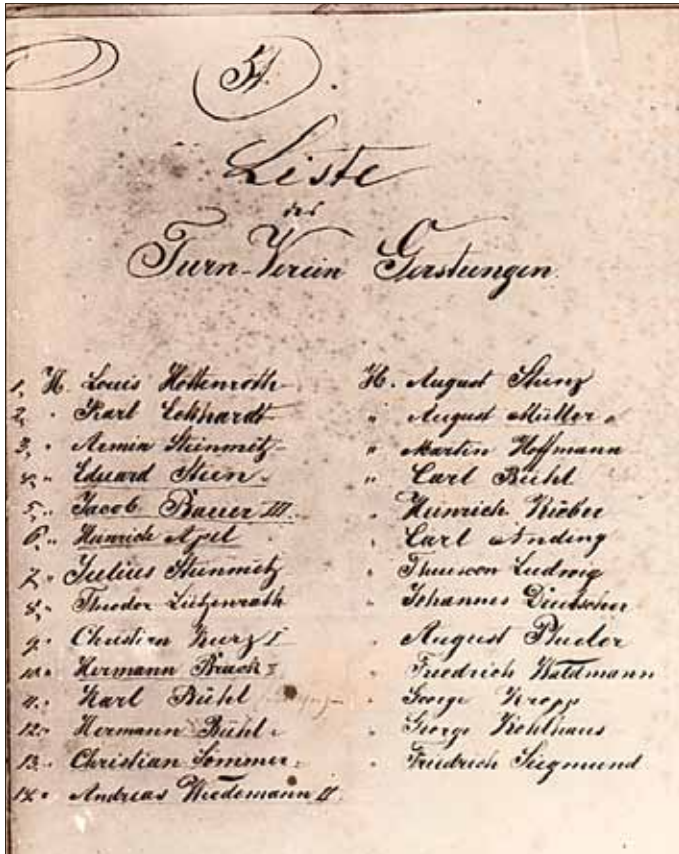 51.
Liste
des
Turn-Verein Gerstungen.
1, H. Louis Hollenroth
2, " Karl Eckhardt
3, " Armin Steinmetz
4, " Eduard Stein
5, " Jacob Bauer III.
6, " Heinrich Apel
7, " Julius Steinmetz
8, " Theodor Lützenrath
9, " Christian Kurz I
10, " Hermann Brack I
11, " Karl Bühl
12, " Hermann Bühl
13, " Christian Sommer
14, " Andreas Wiedemann II.
H. August Stunz
" August Müller
" Martin Hoffmann
" Carl Bühl
" Heinrich
" Carl Anding
" Ludwig
" Johannes
" August
" Friedrich Waldmann
" George Kropp
" George Kohlhaus
" Friedrich Siegmund